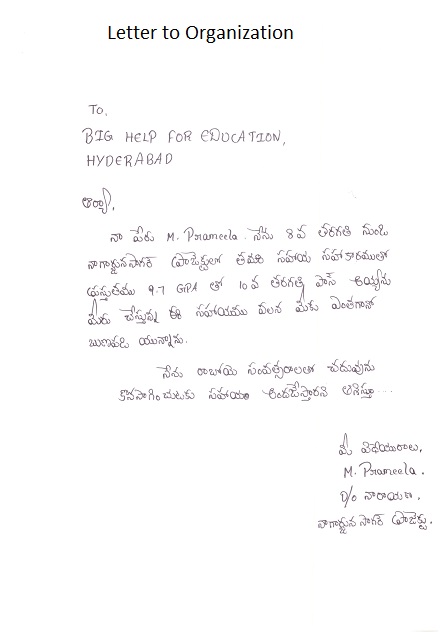 Letter to Organization
To,
BIG HELP FOR EDUCATION,
HYDERABAD
ఆర్యా,
నా పేరు M. Prameela. నేను 8వ తరగతి నుండి
నాగార్జునసాగర్ ప్రాజెక్టులో తమరి సహాయ సహకారముతో
ప్రస్తుతము 9.7 GPA తో 10వ తరగతి పాస్ అయ్యాను
మీరు చేస్తున్న ఈ సహాయము వలన మీకు ఎంతగానో
ఋణపడి యున్నాను.
నేను రాబోయె సంవత్సరాలలో చదువును
కొనసాగించుటకు సహాయం అందచేస్తారని ఆశిస్తూ....
మీ విధేయురాలు,
M. Prameela.
D/o నారాయణ,
నాగార్జునసాగర్ ప్రాజెక్టు.